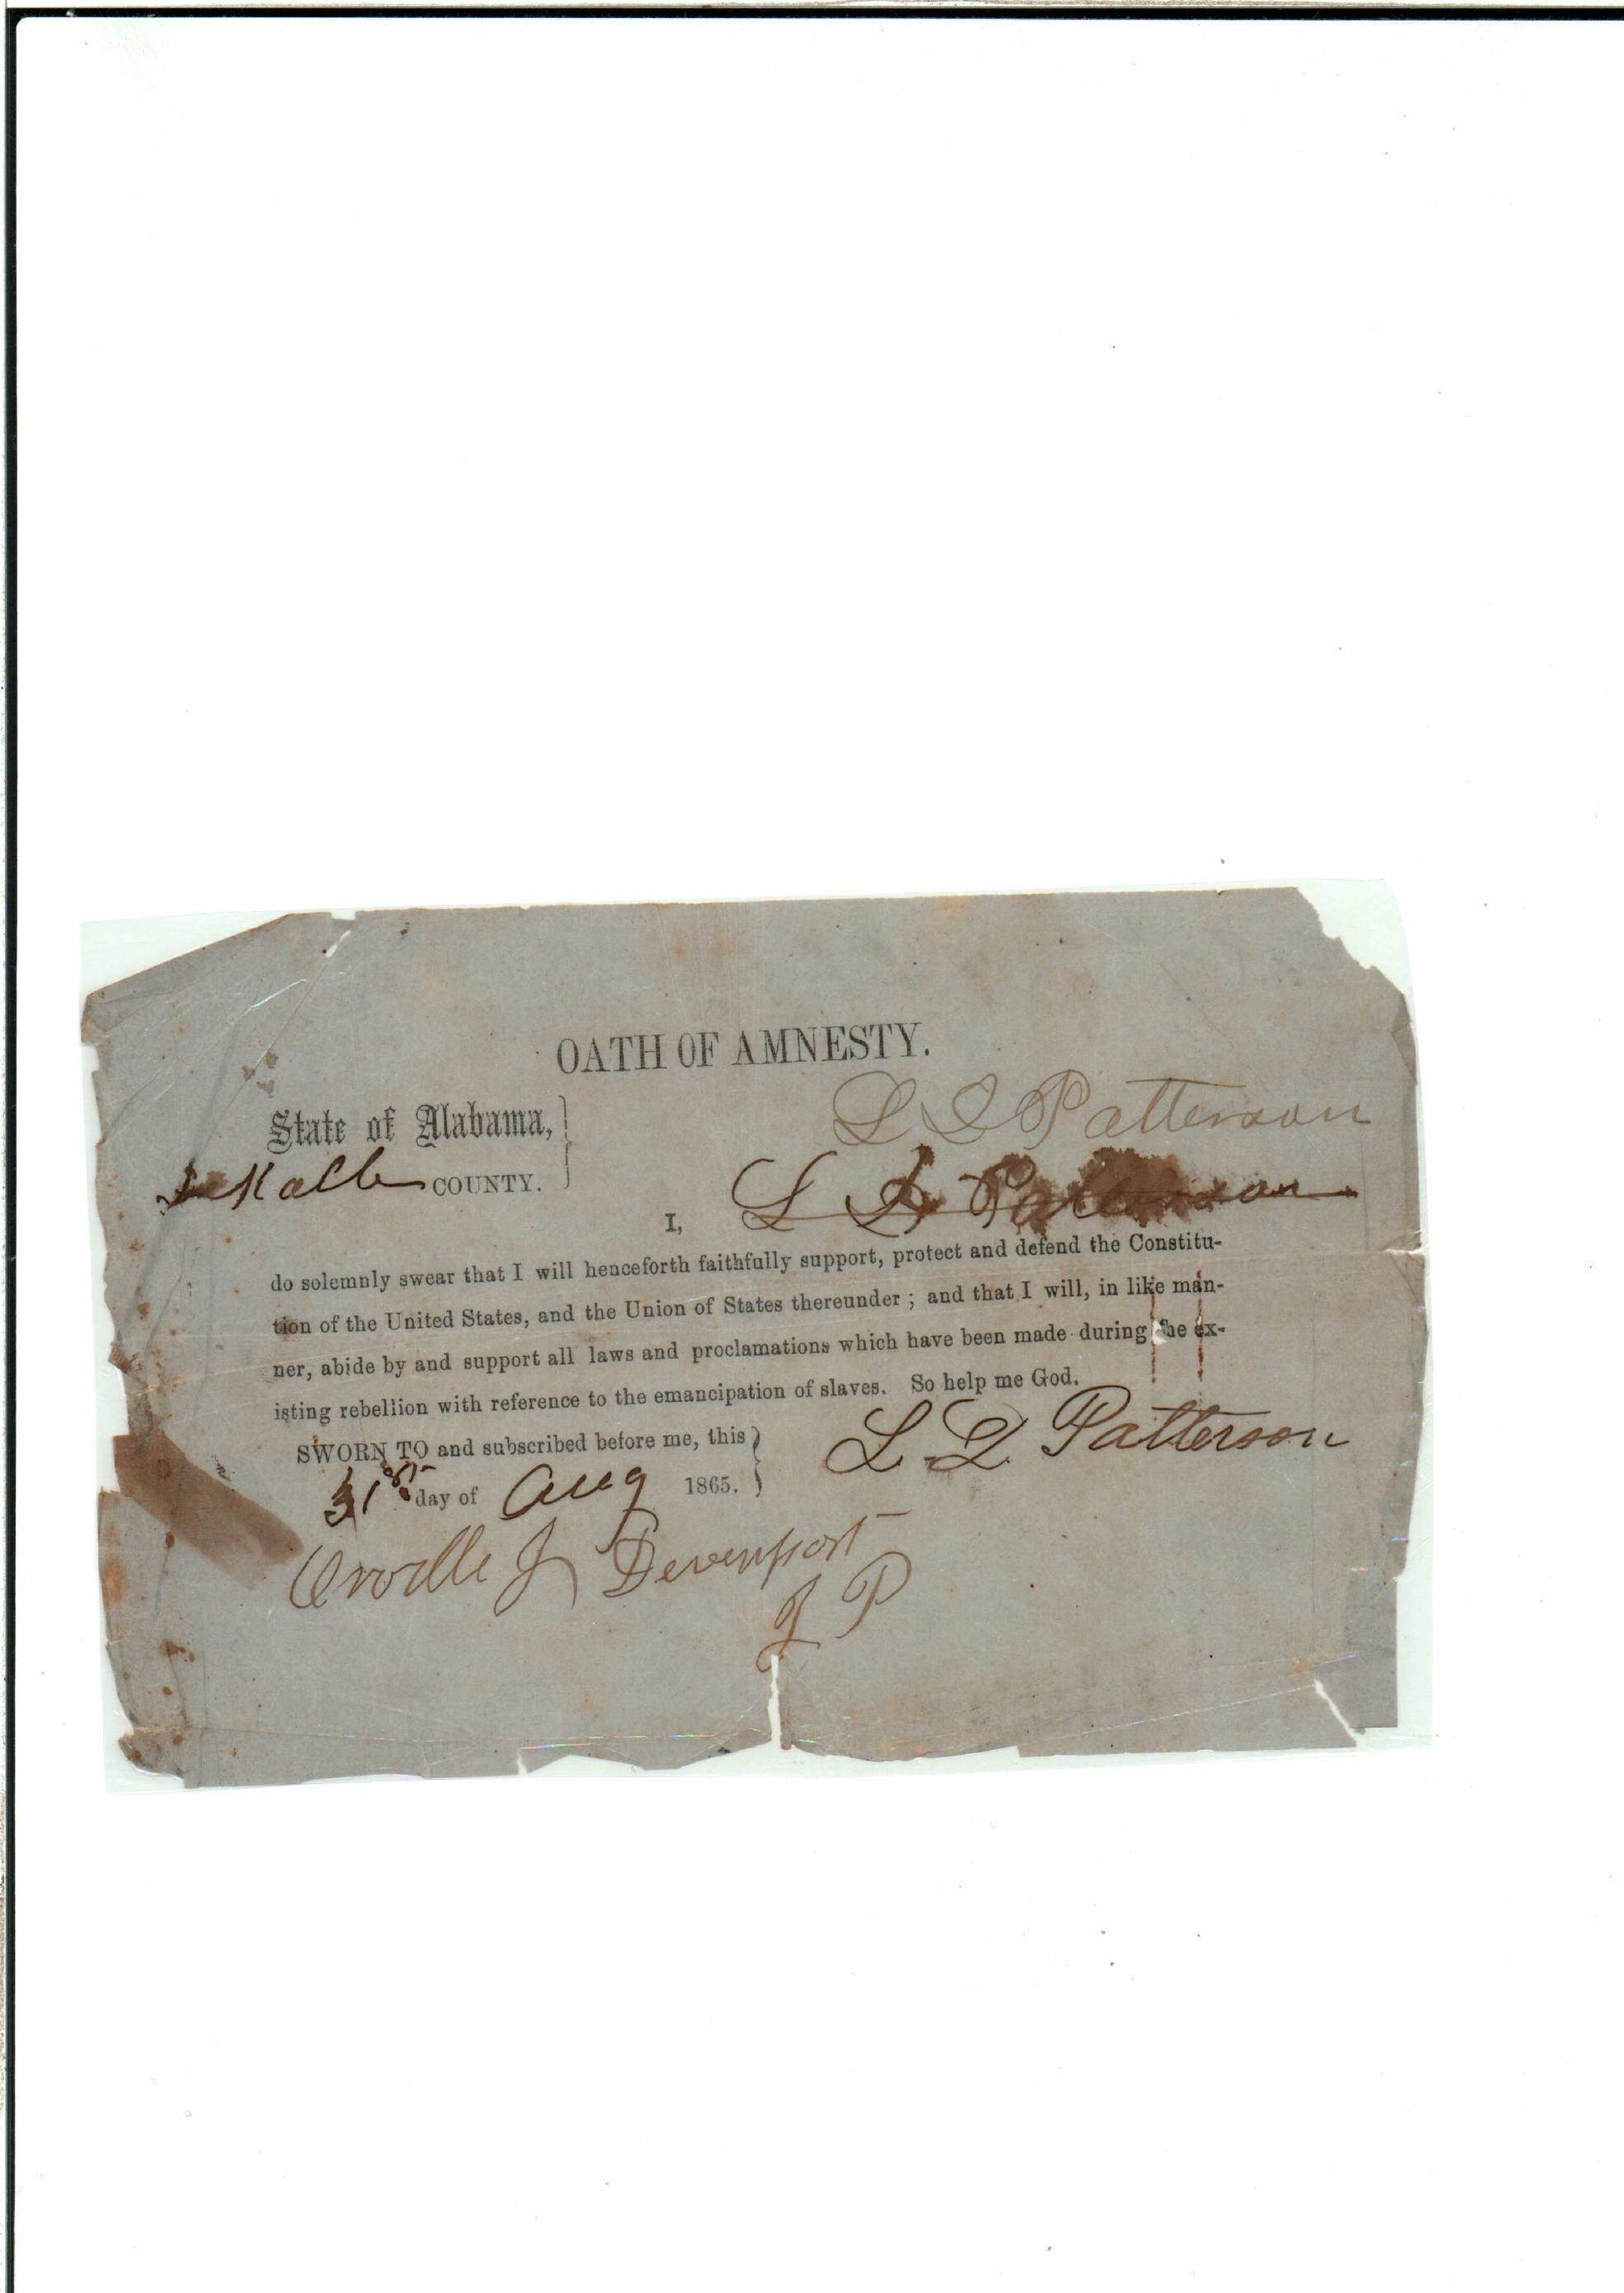 OATH OF AMNESTY.
L L Patterson
State of Alabama,
DeKalb COUNTY.
I, L L Patterson
do solemnly swear that I will henceforth faithfully support, protect and defend the Constitu-
tion of the United States, and the Union of States thereunder ; and that I will, in like man-
ner, abide by and support all laws and proclamations which have been made during the ex-
isting rebellion with reference to the emancipation of slaves. So help me God.
SWORN TO and subscribed before me, this
L L Patterson
31st day of Aug 1865.
Orville J Devenport
J P